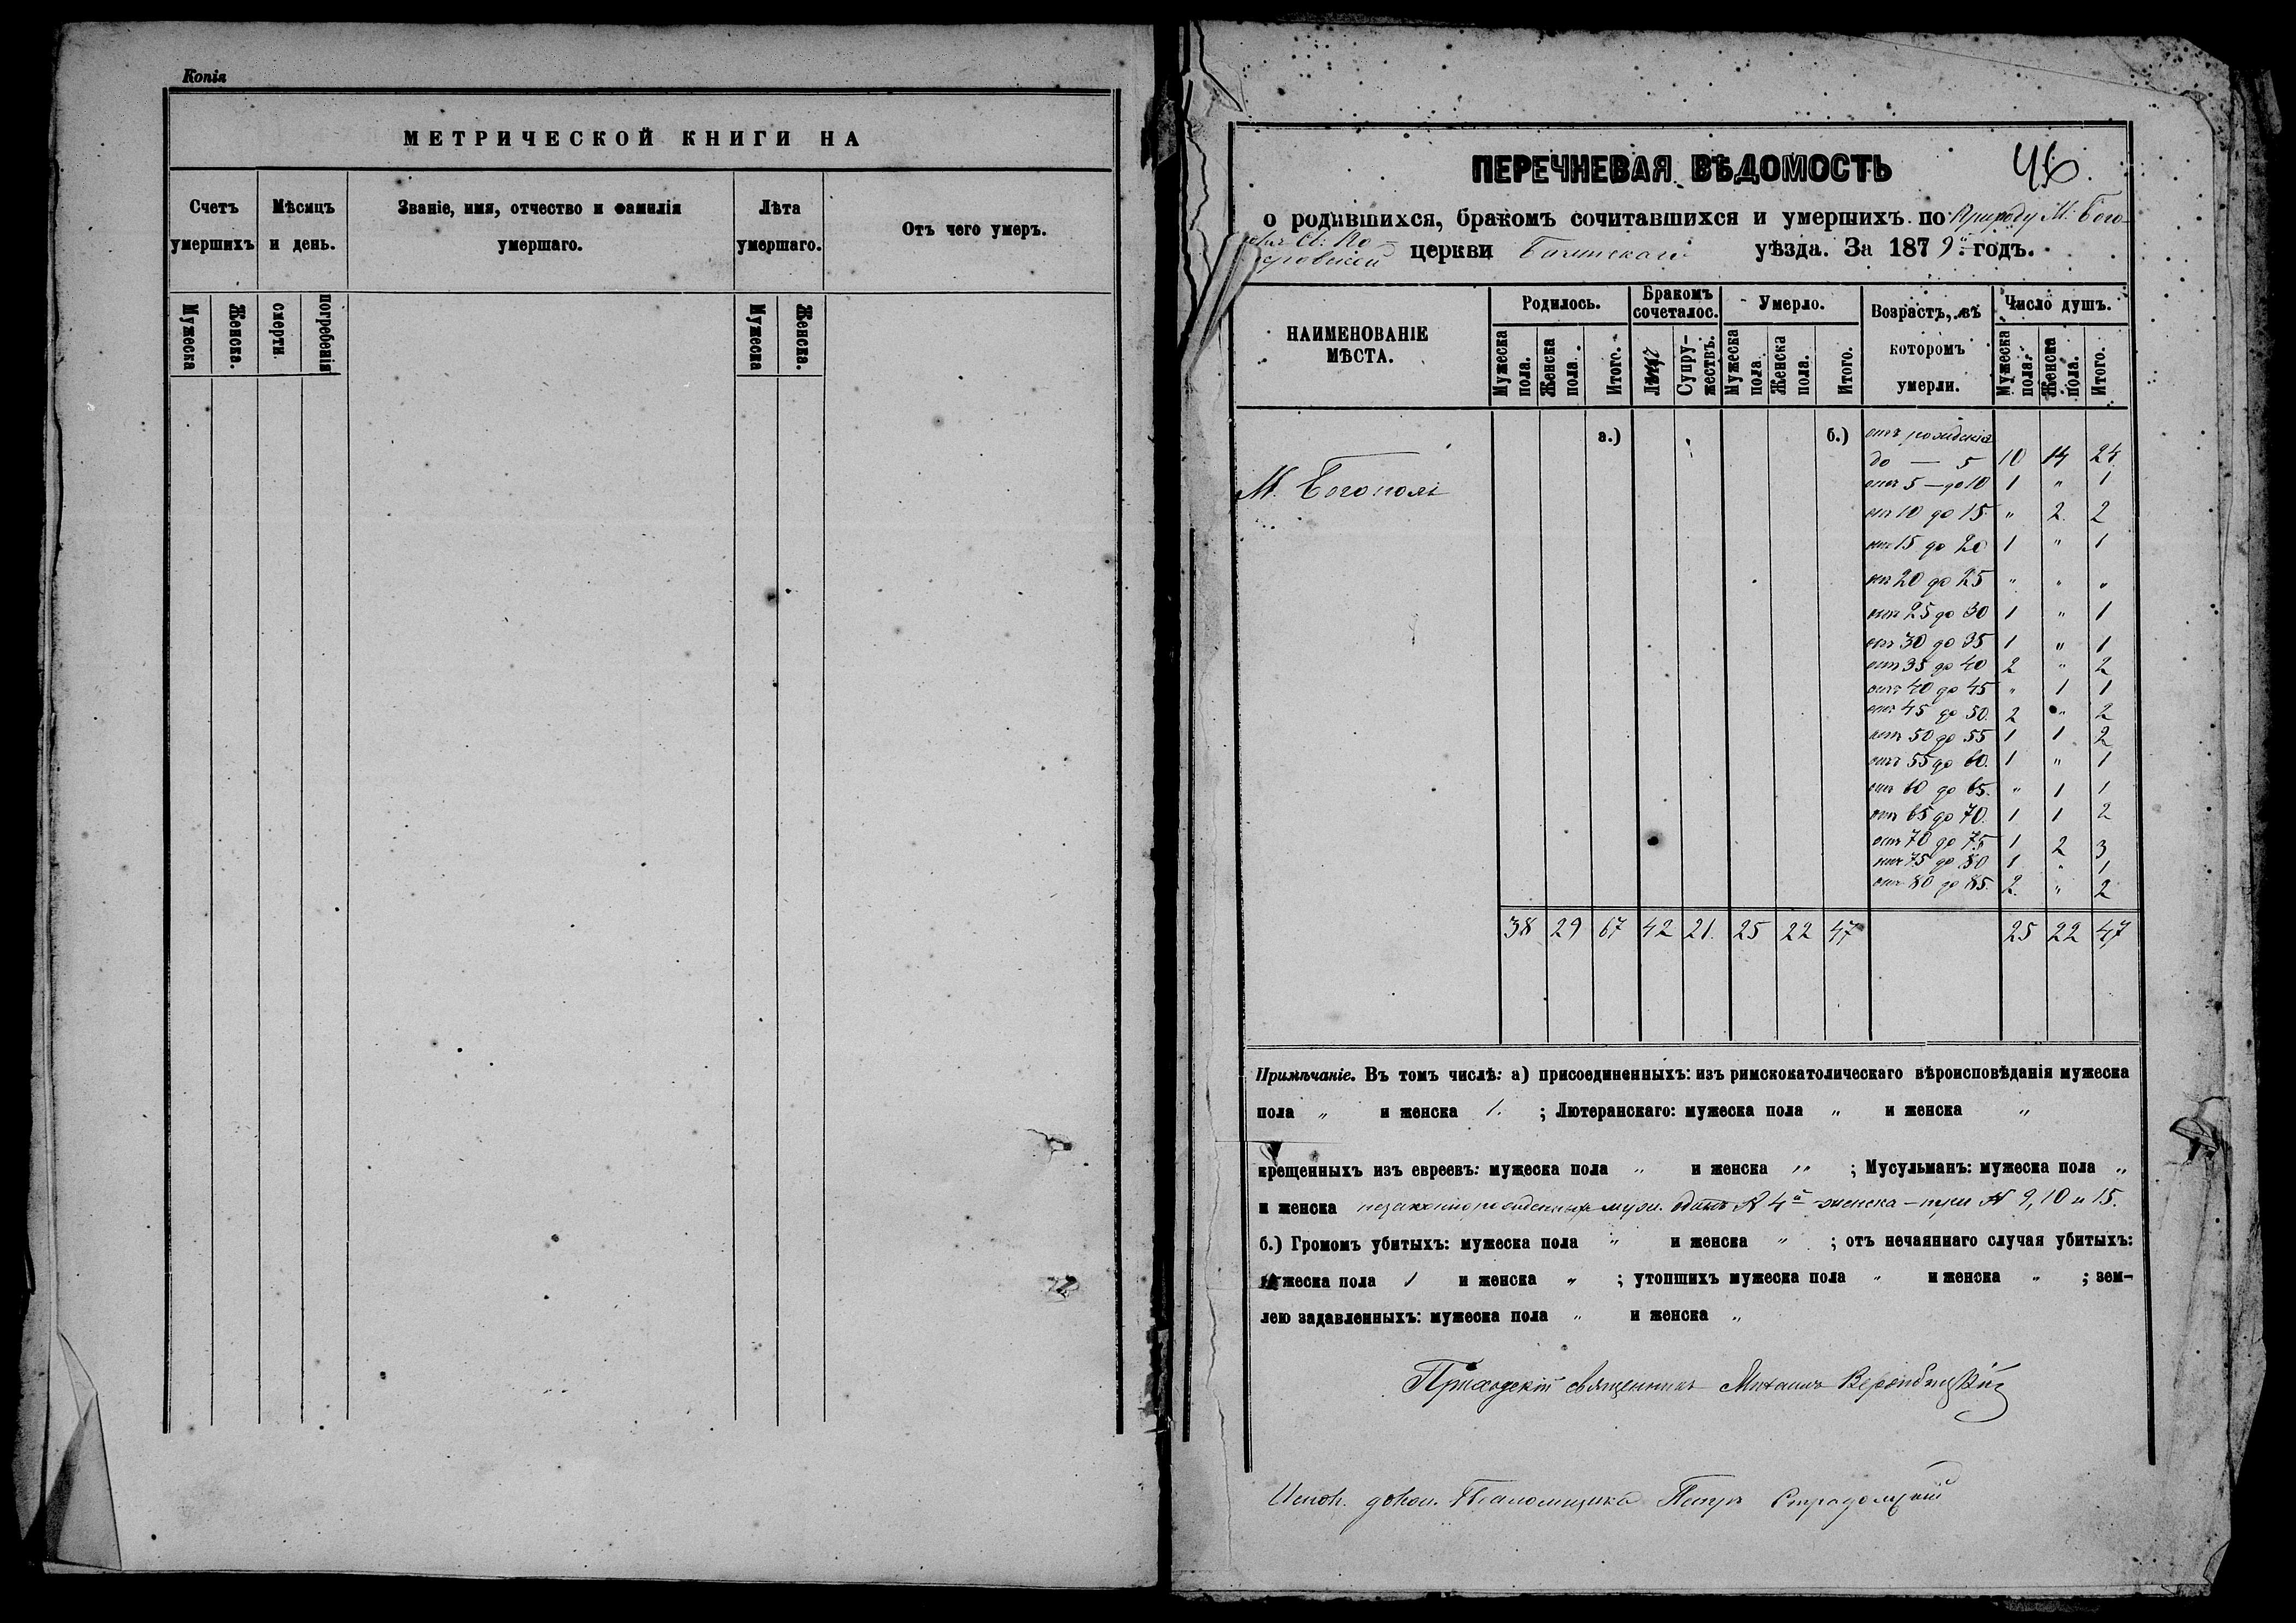 Копія
МЕТРИЧЕСКОЙ КНИГИ НА
Счетъ умершихъ
Мѣсяцъ и день.
Званіе, имя, отчество и фамилія умершаго.
Лѣта умершаго.
Отъ чего умеръ.
Мужеска
Женска.
смерти.
погребенія
Мужеска
Женска.
ПЕРЕЧНЕВАЯ ВѢДОМОСТЬ
46.
о родившихся, бракомъ сочитавшихся и умершихъ по Приходу М. Бого
церкви Балтскаго уѣзда. За 1879й годъ.
НАИМЕНОВАНІЕ МѢСТА.
Родилось.
Бракомъ сочеталос.
Умерло.
Возрастъ, въ которомъ умерли.
Число душъ.
Мужеска пола.
Женска пола.
Итого.
Лицъ
Супружествъ.
Мужеска пола
Женска пола.
Итого.
Мужеска пола.
Женска пола.
Итого.
а.) б.) отъ рожденія
до — 5 10 14 24
М. Богополь
отъ 5 — до 10 1 " 1
отъ 10 до 15 " 2 2
отъ 15 до 20 1 " 1
отъ 20 до 25 " " "
отъ 25 до 30 1 " 1
отъ 30 до 35 1 " 1
отъ 35 до 40 2 " 2
отъ 40 до 45 " 1 1
отъ 45 до 50 2 " 2
отъ 50 до 55 1 1 2
отъ 55 до 60. 1 " 1
отъ 60 до 65. " 1 1
отъ 65 до 70. 1 1 2
отъ 70 до 75 1 2 3
отъ 75 до 80 1 " 1
отъ 80 до 85. 2. " 2
38 29 67 42 21. 25 22 47 25 22 47
Примѣчаніе. Въ томъ числѣ: а) присоединенныхъ: изъ римскокатолическаго вѣроисповѣданія мужеска
пола " и женска 1. ; Лютеранскаго: мужеска пола " и женска "
крещенныхъ изъ евреевъ: мужеска пола " и женска " ; Мусульманъ: мужеска пола "
и женска незаконнорожденныхъ муж. одинъ № 4й женска — три № 9, 10 и 15.
б.) Громомъ убитыхъ: мужеска пола " и женска " ; отъ нечаяннаго случая убитыхъ:
мужеска пола 1 и женска " ; утопшихъ мужеска пола " и женска " ; зем-
лею задавленныхъ: мужеска пола " и женска "
Приходскій священникъ Михаилъ
Псаломщика Петръ